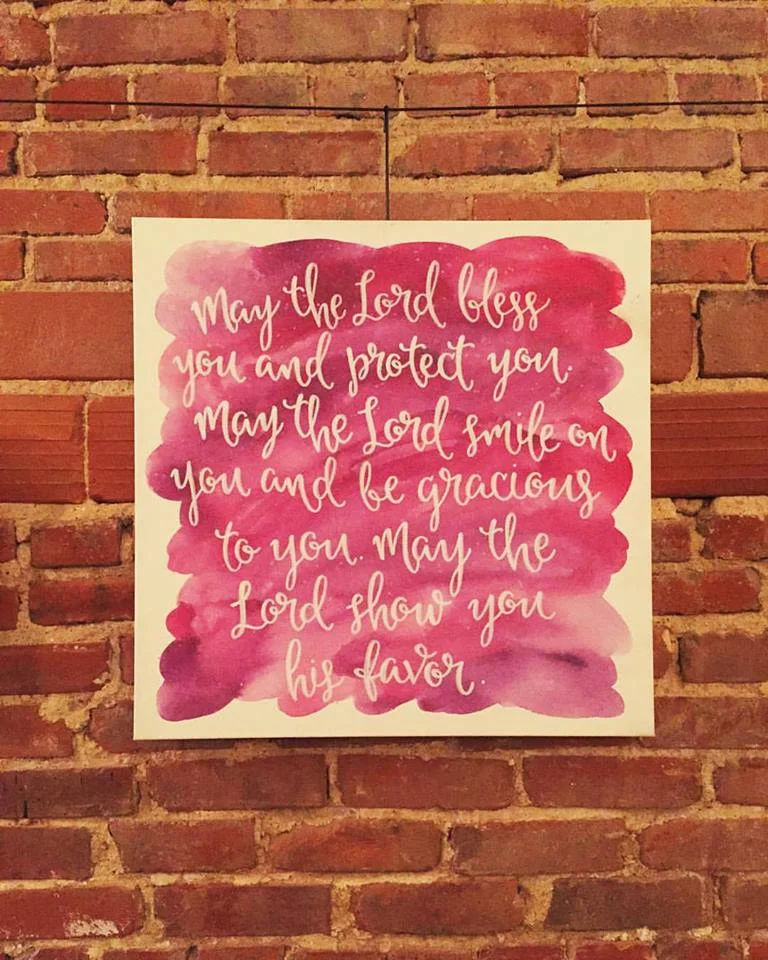 May the Lord bless
you and protect you.
May the Lord smile on
you and be gracious
to you. May the
Lord show you
his favor.